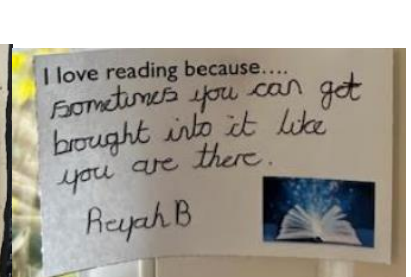 I love reading because....
sometimes you can get
brought into it like
you are there.
Reyah B